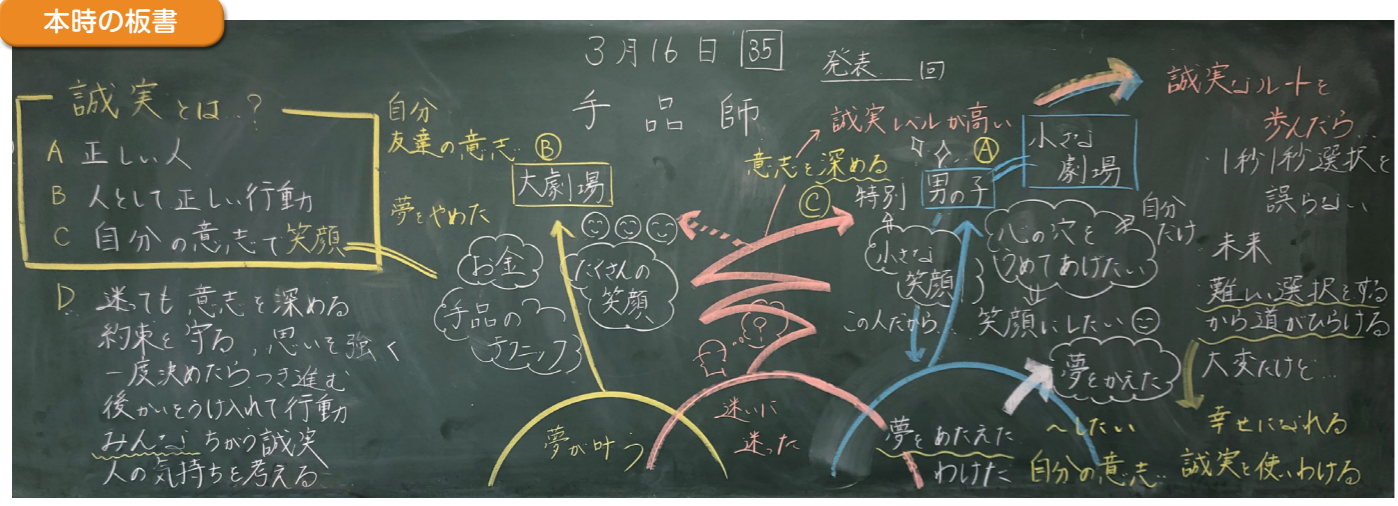 本時の板書
3月16日 35
発表 回
手品師
誠実とは?
A 正しい人
B 人として正しい行動
C 自分の意志で笑顔
D 迷ても意志を深める
約束を守る、思いを強く
一度決めたらつき進む
後かいをうけ入れて行動
みんなちがう誠実
人の気持ちを考える
自分
友達の意志… B
夢をやめた
大劇場
お金
手品の
テクニック
たくさんの
笑顔
夢が叶う
誠実レベルが高い
意志を深める
C
?
迷いに
迷った
特別
A
男の子
小さな
劇場
小さな
笑顔
この人だから…
心の穴を
うめてあげたい
自分
だけ
笑顔にしたい
夢をかえた
夢をあたえた
わけた
〜したい
自分の意志…
誠実なルートを
歩んだら…
・1秒1秒選択を
誤らない
・未来
難しい選択をする
から道がひらける
大変だけど…
幸せになれる
誠実を使いわける